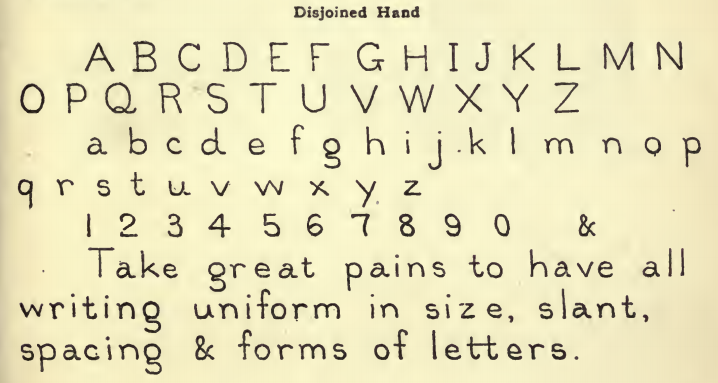 Disjoined Hand
A B C D E F G H I J K L M N
O P Q R S T U V W X Y Z
a b c d e f g h i j k l m n o p
q r s t u v w x y z
1 2 3 4 5 6 7 8 9 0 &
Take great pains to have all
writing uniform in size, slant,
spacing & forms of letters.